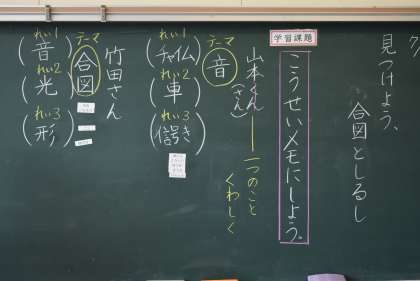 見つけよう、
合図としるし
学習課題
こうせいメモにしよう。
山本くん(さん)
一つのこと
くわしく
テーマ
音
れい1
(チャイム)
れい2
(車)
れい3
竹田さん
テーマ
合図
れい1
(音)
れい2
(光)
れい3
(形)